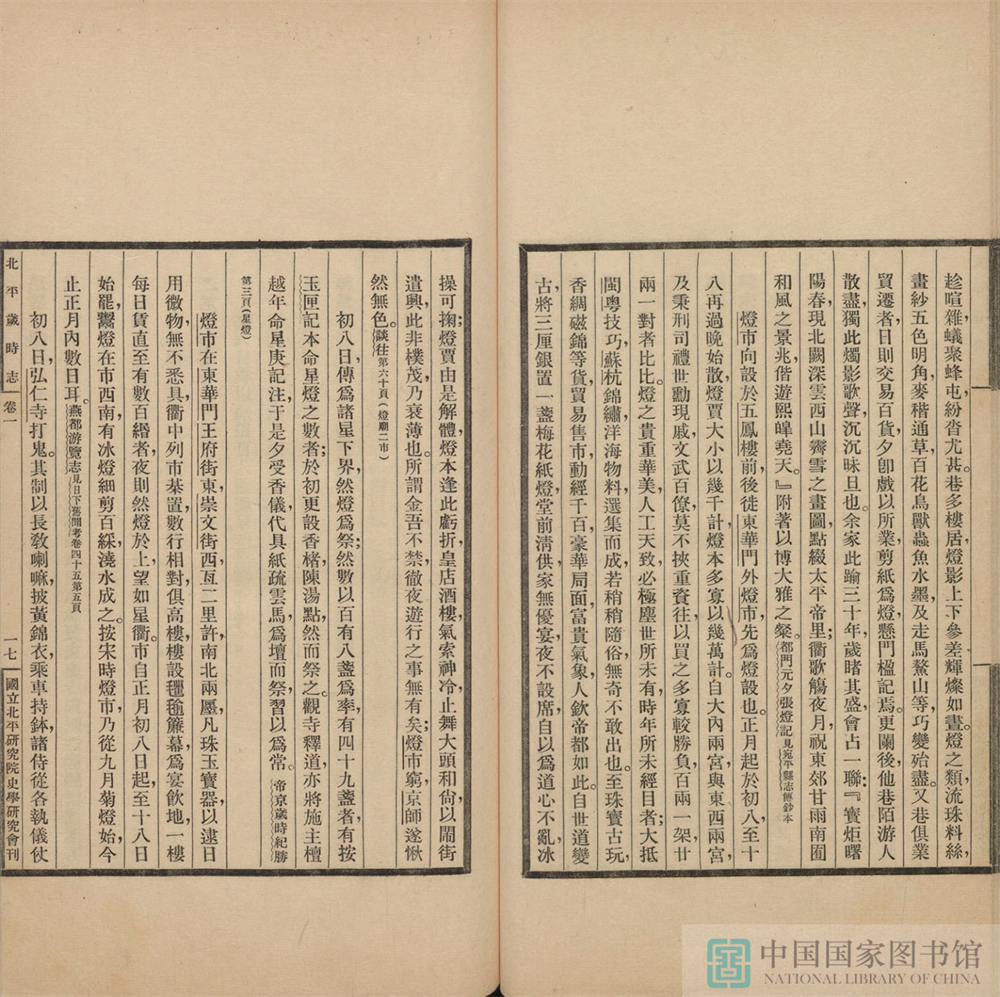 趁喧雜蟻聚蜂屯，紛沓尤甚。巷多樓居燈影上下參差輝燦如晝。燈之類流珠料絲，
畫紗五色明角，麥稭通草，百花鳥獸蟲魚水墨，及走馬鰲山等，巧變殆盡。又巷俱業
貿遷者，日則交易百貨，夕卽戲以所業剪紙爲燈懸門楹記焉。更闌後他巷陌游人
散盡，獨此燭影歌聲，沉沉昧旦也。余家此踰三十年，歲睹其盛，會占一聯：『寶炬曙
陽春，現北闕深雲西山霽雪之畫圖，點綴太平帝里；衢歌觴夜月，祝東郊甘雨南囿
和風之景兆，偕遊熙皞堯天。』附著以博大雅之粲。都門元夕張燈記見宛平縣志傳鈔本
燈市向設於五鳳樓前，後徙東華門外，燈市先爲燈設也。正月起於初八，至十
八再過晚始散，燈賈大小以幾千計，燈本多寡以幾萬計。自大內兩宮與東西兩宮，
及秉刑司禮世勳現戚文武百僚，莫不挾重資往，以買之多寡較勝負，百兩一架，廿
兩一對者比比。燈之貴重華美，人工天致，必極塵世所未有，時年所未經目者；大抵
閩粵技巧，蘇杭錦繡，洋海物料，選集而成，若稍稍隨俗無奇，不敢出也。至珠寶古玩，
香綢磁錦等貨，貿易售市，動經千百，豪華局面，富貴氣象，人欽帝都如此。自世道變
古，將三厘銀置一盞梅花紙燈，堂前清供，家無優宴，夜不設席，自以爲道心不亂，冰
操可掬；燈賈由是解體，燈本逢此虧折，皇店酒樓，氣索神冷，止舞大頭和尚，以鬧街
遣興，此非樸茂，乃衰薄也。所謂金吾不禁，徹夜遊行之事無有矣；燈市窮，京師遂愀
然無色。談往第六十頁（燈廟二市）
初八日，傳爲諸星下界，然燈爲祭；然數以百有八盞爲率，有四十九盞者，有按
玉匣記本命星燈之數者；於初更設香楮，陳湯點，然而祭之。觀寺釋道，亦將施主檀
越年命星庚記注，于是夕受香儀，代具紙疏雲馬，爲壇而祭，習以爲常。帝京歲時紀勝
第三頁（星燈）
燈市在東華門王府街東，崇文街西，亙二里許，南北兩廛，凡珠玉寶器，以逮日
用微物，無不悉具，衢中列市，棊置數行，相對俱高樓，樓設氍毹簾幕，爲宴飲地，一樓
每日賃直至有數百緡者，夜則然燈於上，望如星衢。市自正月初八日起，至十八日
始罷，鬻燈在市西南，有冰燈，細剪百綵，澆水成之。按宋時燈市，乃從九月菊燈始，今
止正月內數日耳。燕都游覽志見日下舊聞考卷四十五第五頁
初八日，弘仁寺打鬼。其制以長敎喇嘛，披黃錦衣，乘車持鉢，諸侍從各執儀仗
北平歲時志
卷一
一七
國立北平研究院史學研究會刊
中国国家图书馆
NATIONAL LIBRARY OF CHINA